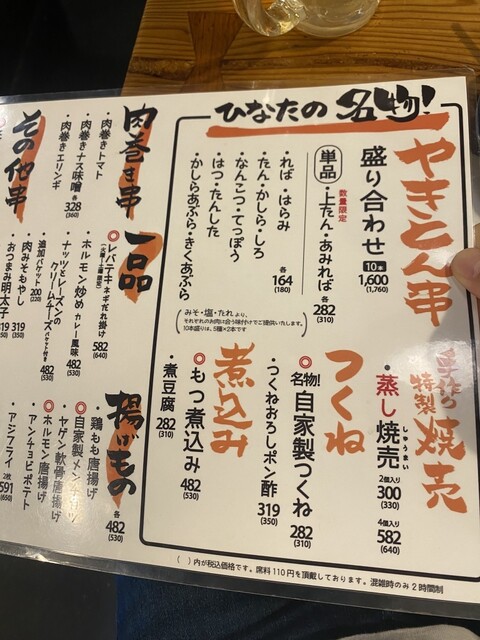 ひなたの名物!
やきとん串
盛り合わせ 10本 1,600 (1,760)
単品
数量限定
・上たん・あみれば 各282 (310)
・れば・はらみ
・たん・かしら・しろ
・なんこつ・てっぽう
・はつ・たんした
・かしらあぶら・きくあぶら
各164 (180)
(みそ・塩・たれより、
それぞれのお肉に合う味付けでご提供いたします。
10本盛りは、5種×2本です)
手作り特製焼売
・蒸し焼売 しゅうまい
2個入り 300 (330)
4個入り 582 (640)
つくね
◎名物!自家製つくね 282 (310)
・つくねおろしポン酢 319 (350)
煮込み
◎もつ煮込み 482 (530)
・煮豆腐 282 (310)
肉巻き串
・肉巻きトマト
・肉巻きナス味噌
・肉巻きエリンギ
各328 (360)
一口品
◎レバテキ ネギだれ掛け 582 (640)
・ホルモン炒め カレー風味 482 (530)
・ナッツとレーズンの
クリームチーズ バケット付き 482 (530)
追加バケット 200 (220)
肉みそもやし 319 (350)
おつまみ明太子 319 (350)
揚げもの
・鶏もも唐揚げ
◎自家製メンチカツ
・ヤゲン軟骨唐揚げ
◎ホルモン唐揚げ
・アンチョビポテト
各482 (530)
・アジフライ 2枚 591 (650)
その他串
( )内が税込価格です。席料110円を頂戴しております。混雑時のみ2時間制